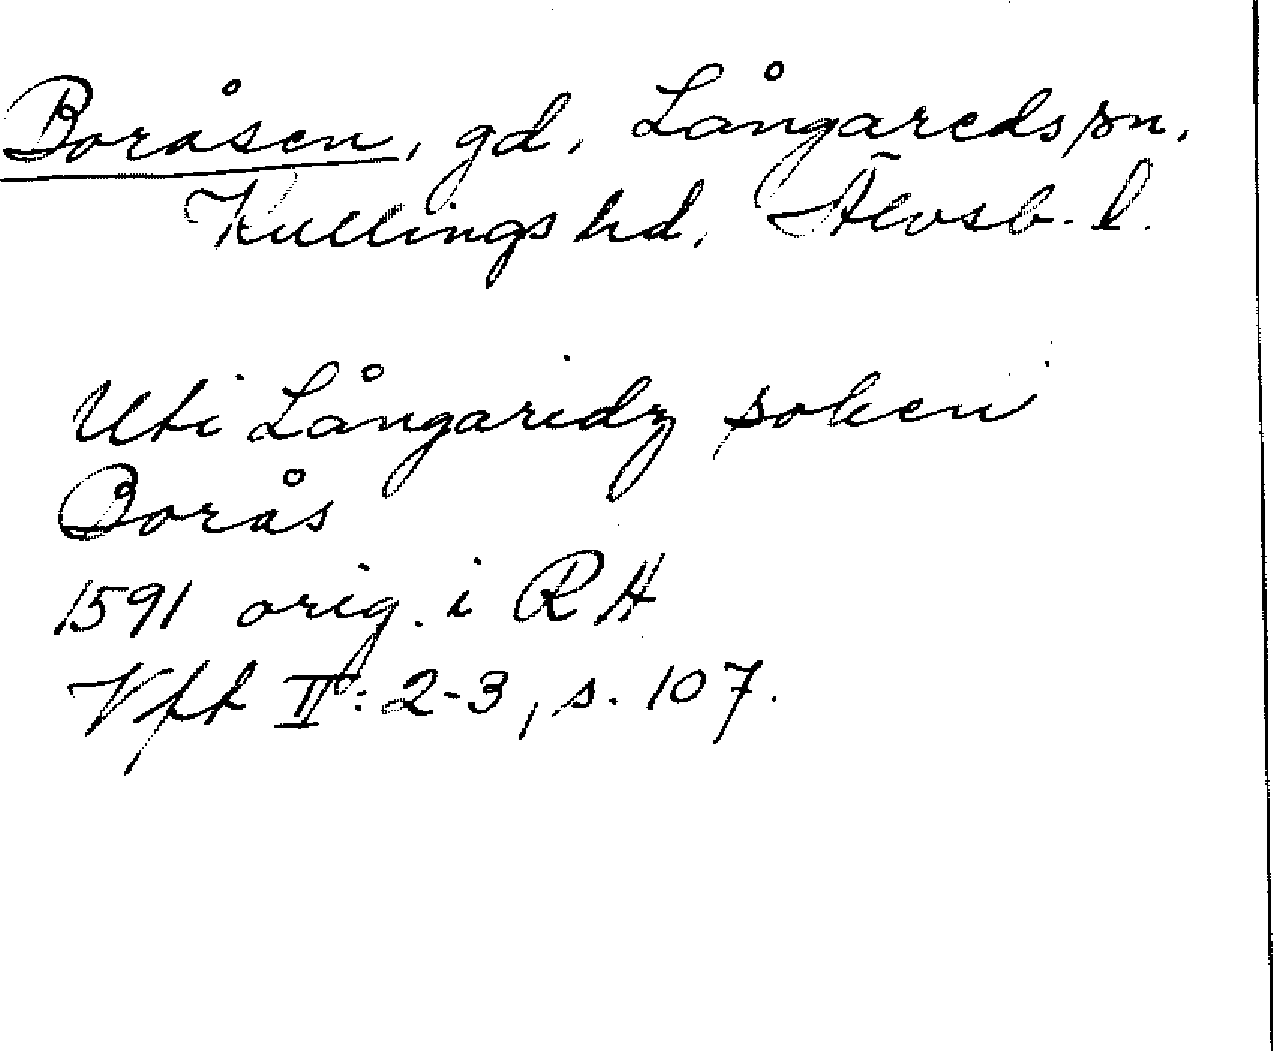 Boråsen, gd, Långareds sn,
Kullings hd, Älvsb. l.
Uti Långaridz soken
Borås
1591 orig. i RH
Vfk II: 2-3, s. 107.